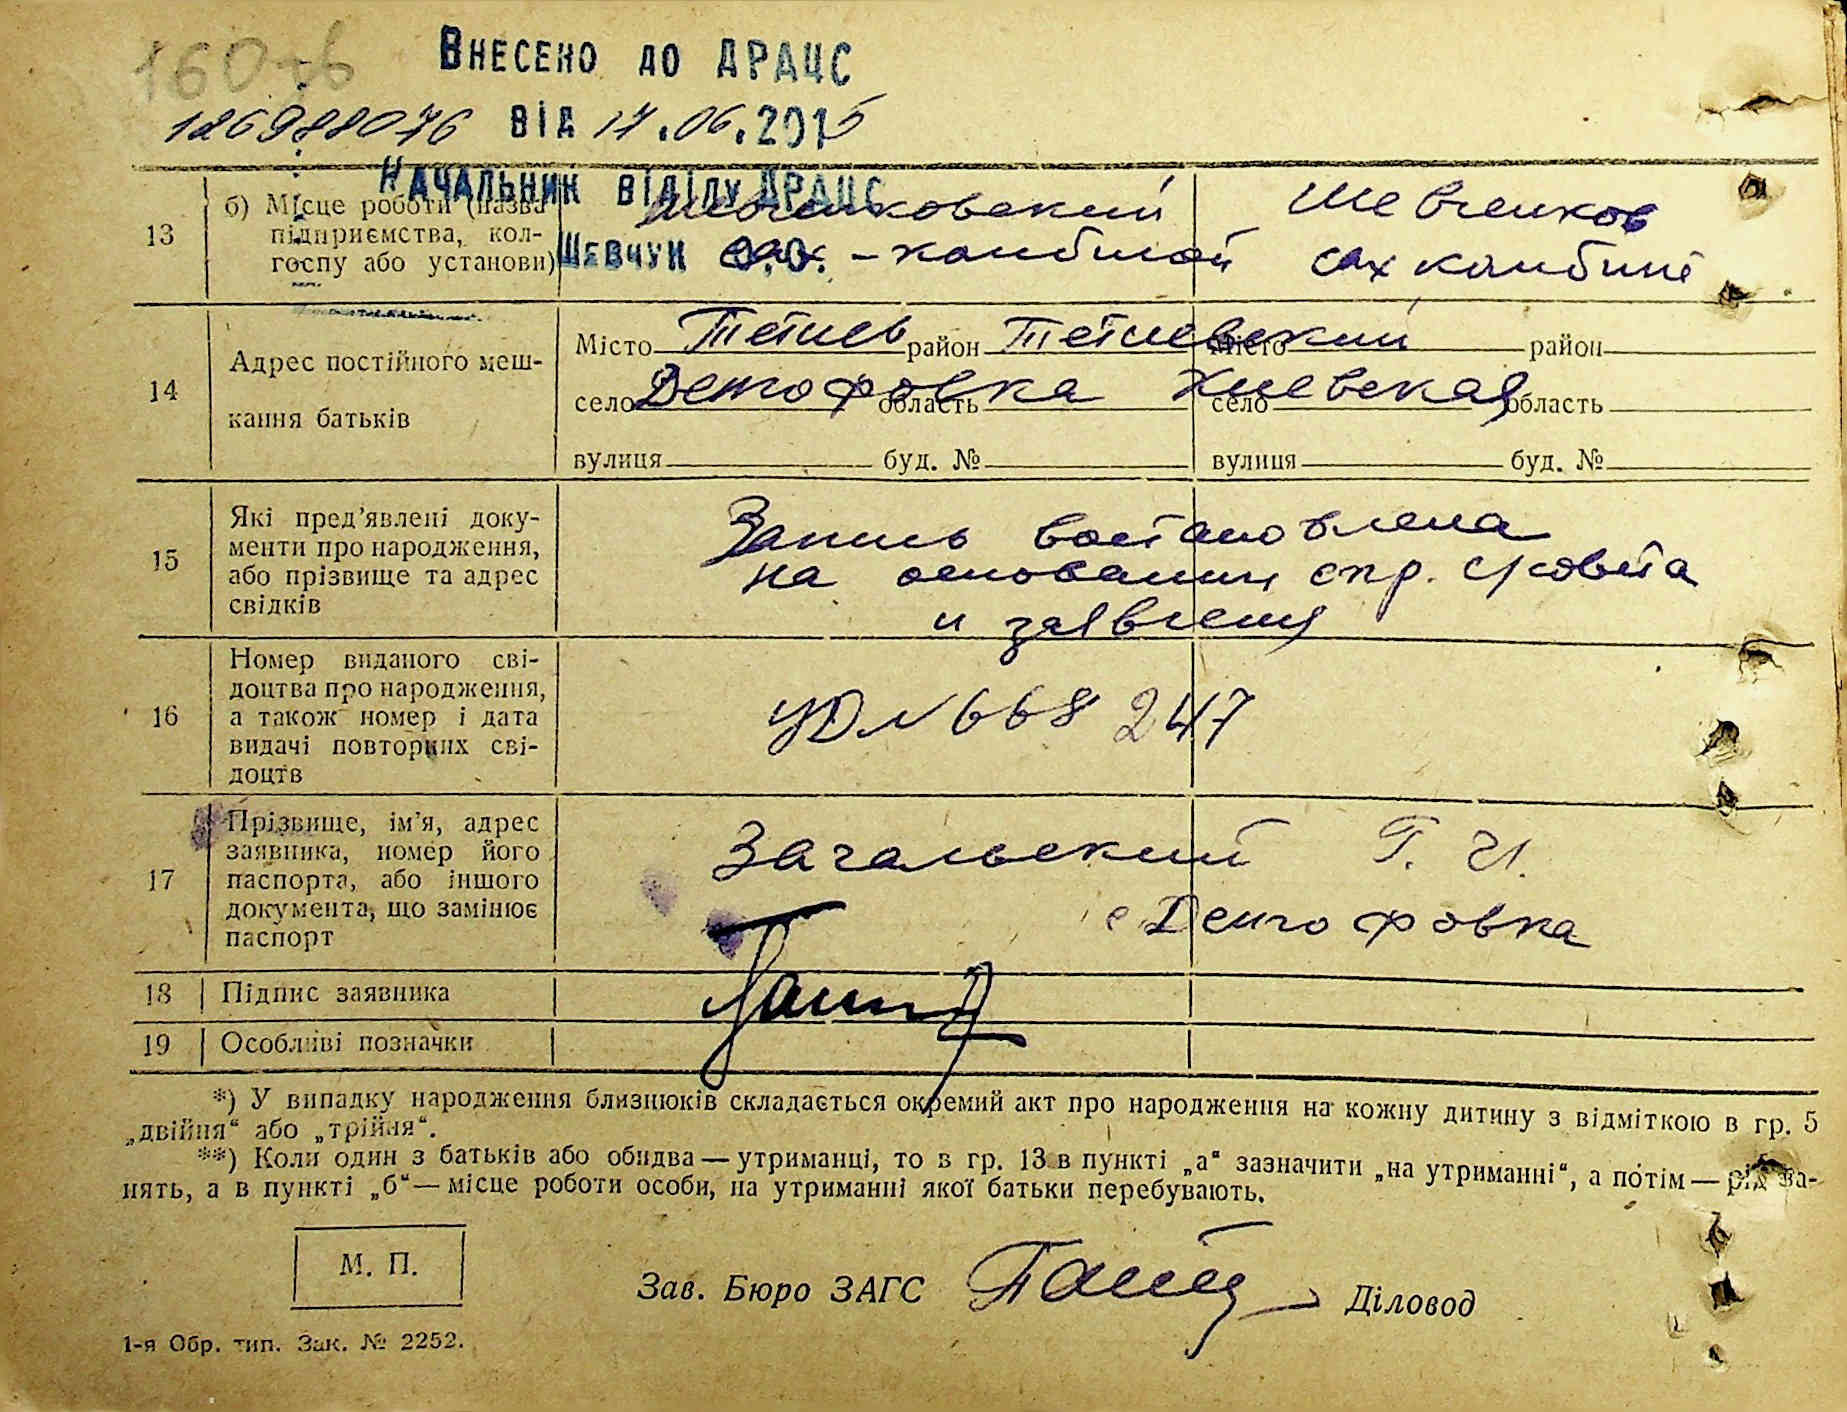 160 зв
Внесено до ДРАЦС
126988076 від 17.06.2015
Начальник відділу ДРАЦС
Шевчук О.О.
13 б) Місце роботи (назва підприємства, кол-
госпу або установи)
Шевченковский Шевченков
сах. - комбинат сах комбинат
14 Адрес постійного меш-
кання батьків
Місто Тетиев район Тетиевский Місто район
село Денгофовка область Киевская село область
вулиця буд. № вулиця буд. №
15 Які пред'явлені доку-
менти про народження,
або прізвище та адрес
свідків
Запись востановлена
на основании спр. с/совета
и заявления
16 Номер виданого сві-
доцтва про народження,
а також номер і дата
видачі повторних сві-
доцтв
УЮ № 668 247
17 Прізвище, ім'я, адрес
заявника, номер його
паспорта, або іншого
документа, що замінює
паспорт
Загальский Г. И.
с Денгофовка
18 Підпис заявника
19 Особливі позначки
*) У випадку народження близнюків складається окремий акт про народження на кожну дитину з відміткою в гр. 5
„двійня“ або „трійня“.
**) Коли один з батьків або обидва — утриманці, то в гр. 13 в пункті „а“ зазначити „на утриманні“, а потім — рід за-
нять, а в пункті „б“ — місце роботи особи, на утриманні якої батьки перебувають.
М. П.
Зав. Бюро ЗАГС Діловод
1-я Обр. тип. Зак. № 2252.